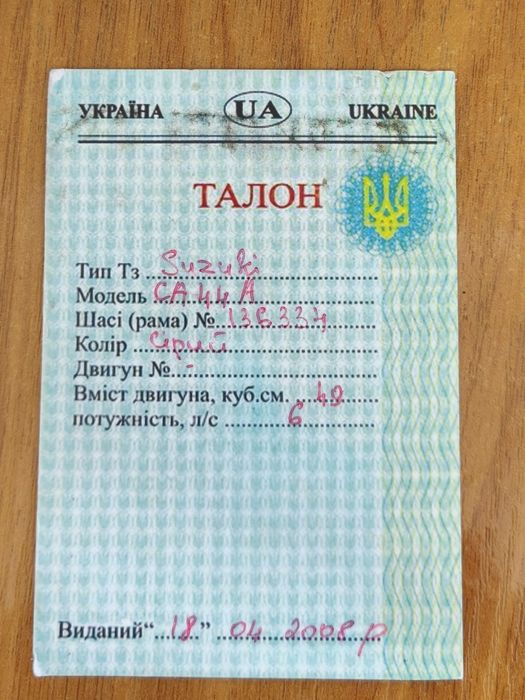 УКРАЇНА UA UKRAINE
ТАЛОН
Тип Тз Suzuki
Модель CA44A
Шасі (рама) № 136334
Колір сірий
Двигун № -
Вміст двигуна, куб.см. 49
потужність, л/с 6
Виданий “18” 04 2008 р